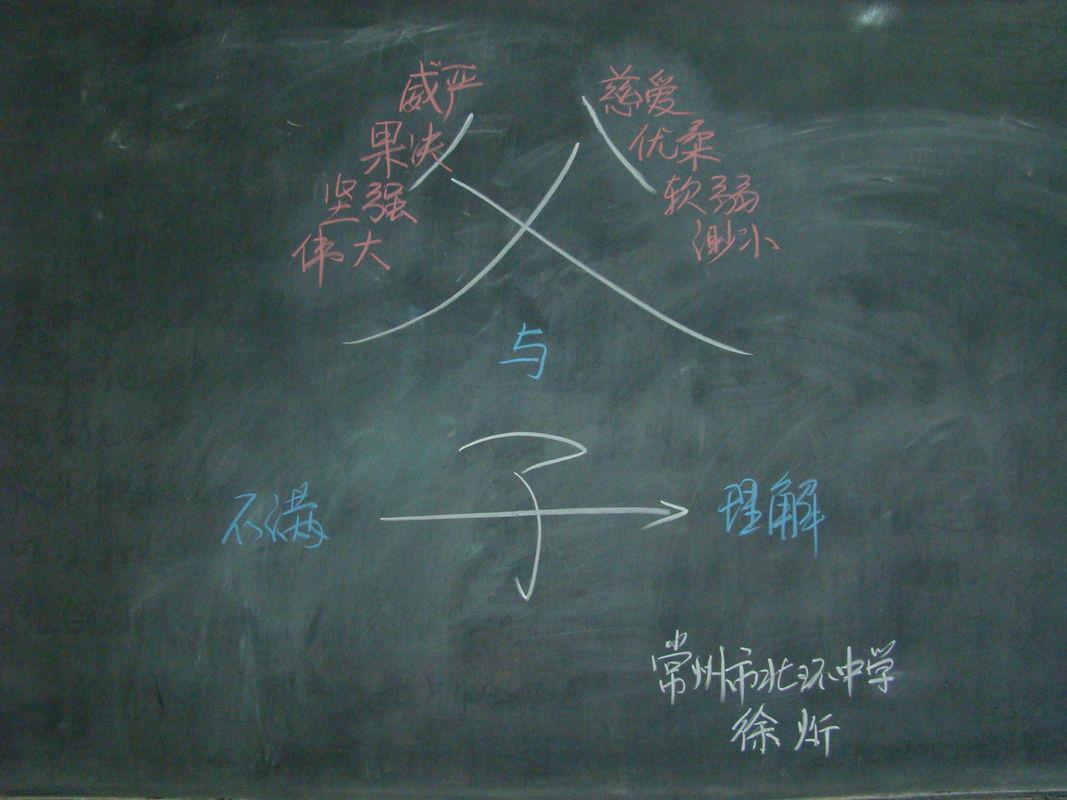 威严 慈爱
果决 优柔
坚强 软弱
伟大 渺小
父
与
子
不满 → 理解
常州市北环中学
徐炘